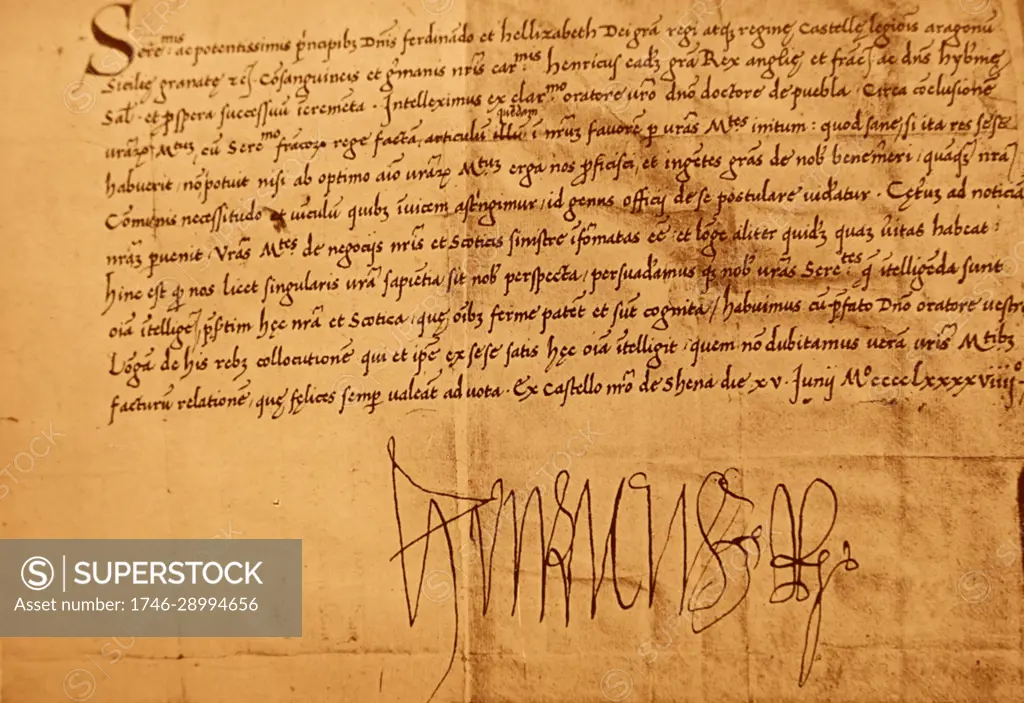 Seremis ac potentissimis prīncipibz Dnīs ferdinādo et hellizabeth Dei grā regi atqz reginę Castellę legiōis aragonū
Sicilię granatę rēj Cōsanguineis et gmanis nrīs carmis henricus eadz grā Rex anglię et fracj ac dns hybnię
Salt et pspera successuū icremēta · Intelleximus ex clarmo oratore vro dno doctore de puebla · Circa cōclusionē
quēdam
vrarz Mtuz cū Sermo frācorz rege factā, articulū illū ī nrūz favorē p vrās Mtes initum : quod sane, si ita res sese
habuerit, nō potuit nisi ab optimo aīo vrārz Mtuz erga nos pficisci, et ingētes grās de nob benemēri, quādqz nrā
Comunis necessitudo et vīculū quibz īvicem astrīgimur, id genus officij de se postulare videatur · Cętez ad noticiā
nrām pvenit, vrās Mtes de negocijs nrīs et Scoticis sinistre īformatas eē, et lōge aliter quidz quaz vītas habeat :
hinc est qp nos licet singularis vrā sapiētia sit nob perspecta, persuadeamus qz nob vrās Seretes q ītelligēda sunt
oīa ītelligej psertim hęc nrā et Scotica, que oībz ferme patēt et sūt cognita / habuimus cū pfato Dno oratore vestro
Lōgā de his rebz collocutionē qui et ipe ex sese satis hęc oīa ītelligit, quem nō dubitamus verā vrīs Mtibz
facturū relationē, quę fęlices semp valeāt ad vota · Ex Castello nro de Shena die xv · Junij Mº ccccLxxxxviiijº ·
henricus R
SUPERSTOCK
Asset number: 1746-28994656